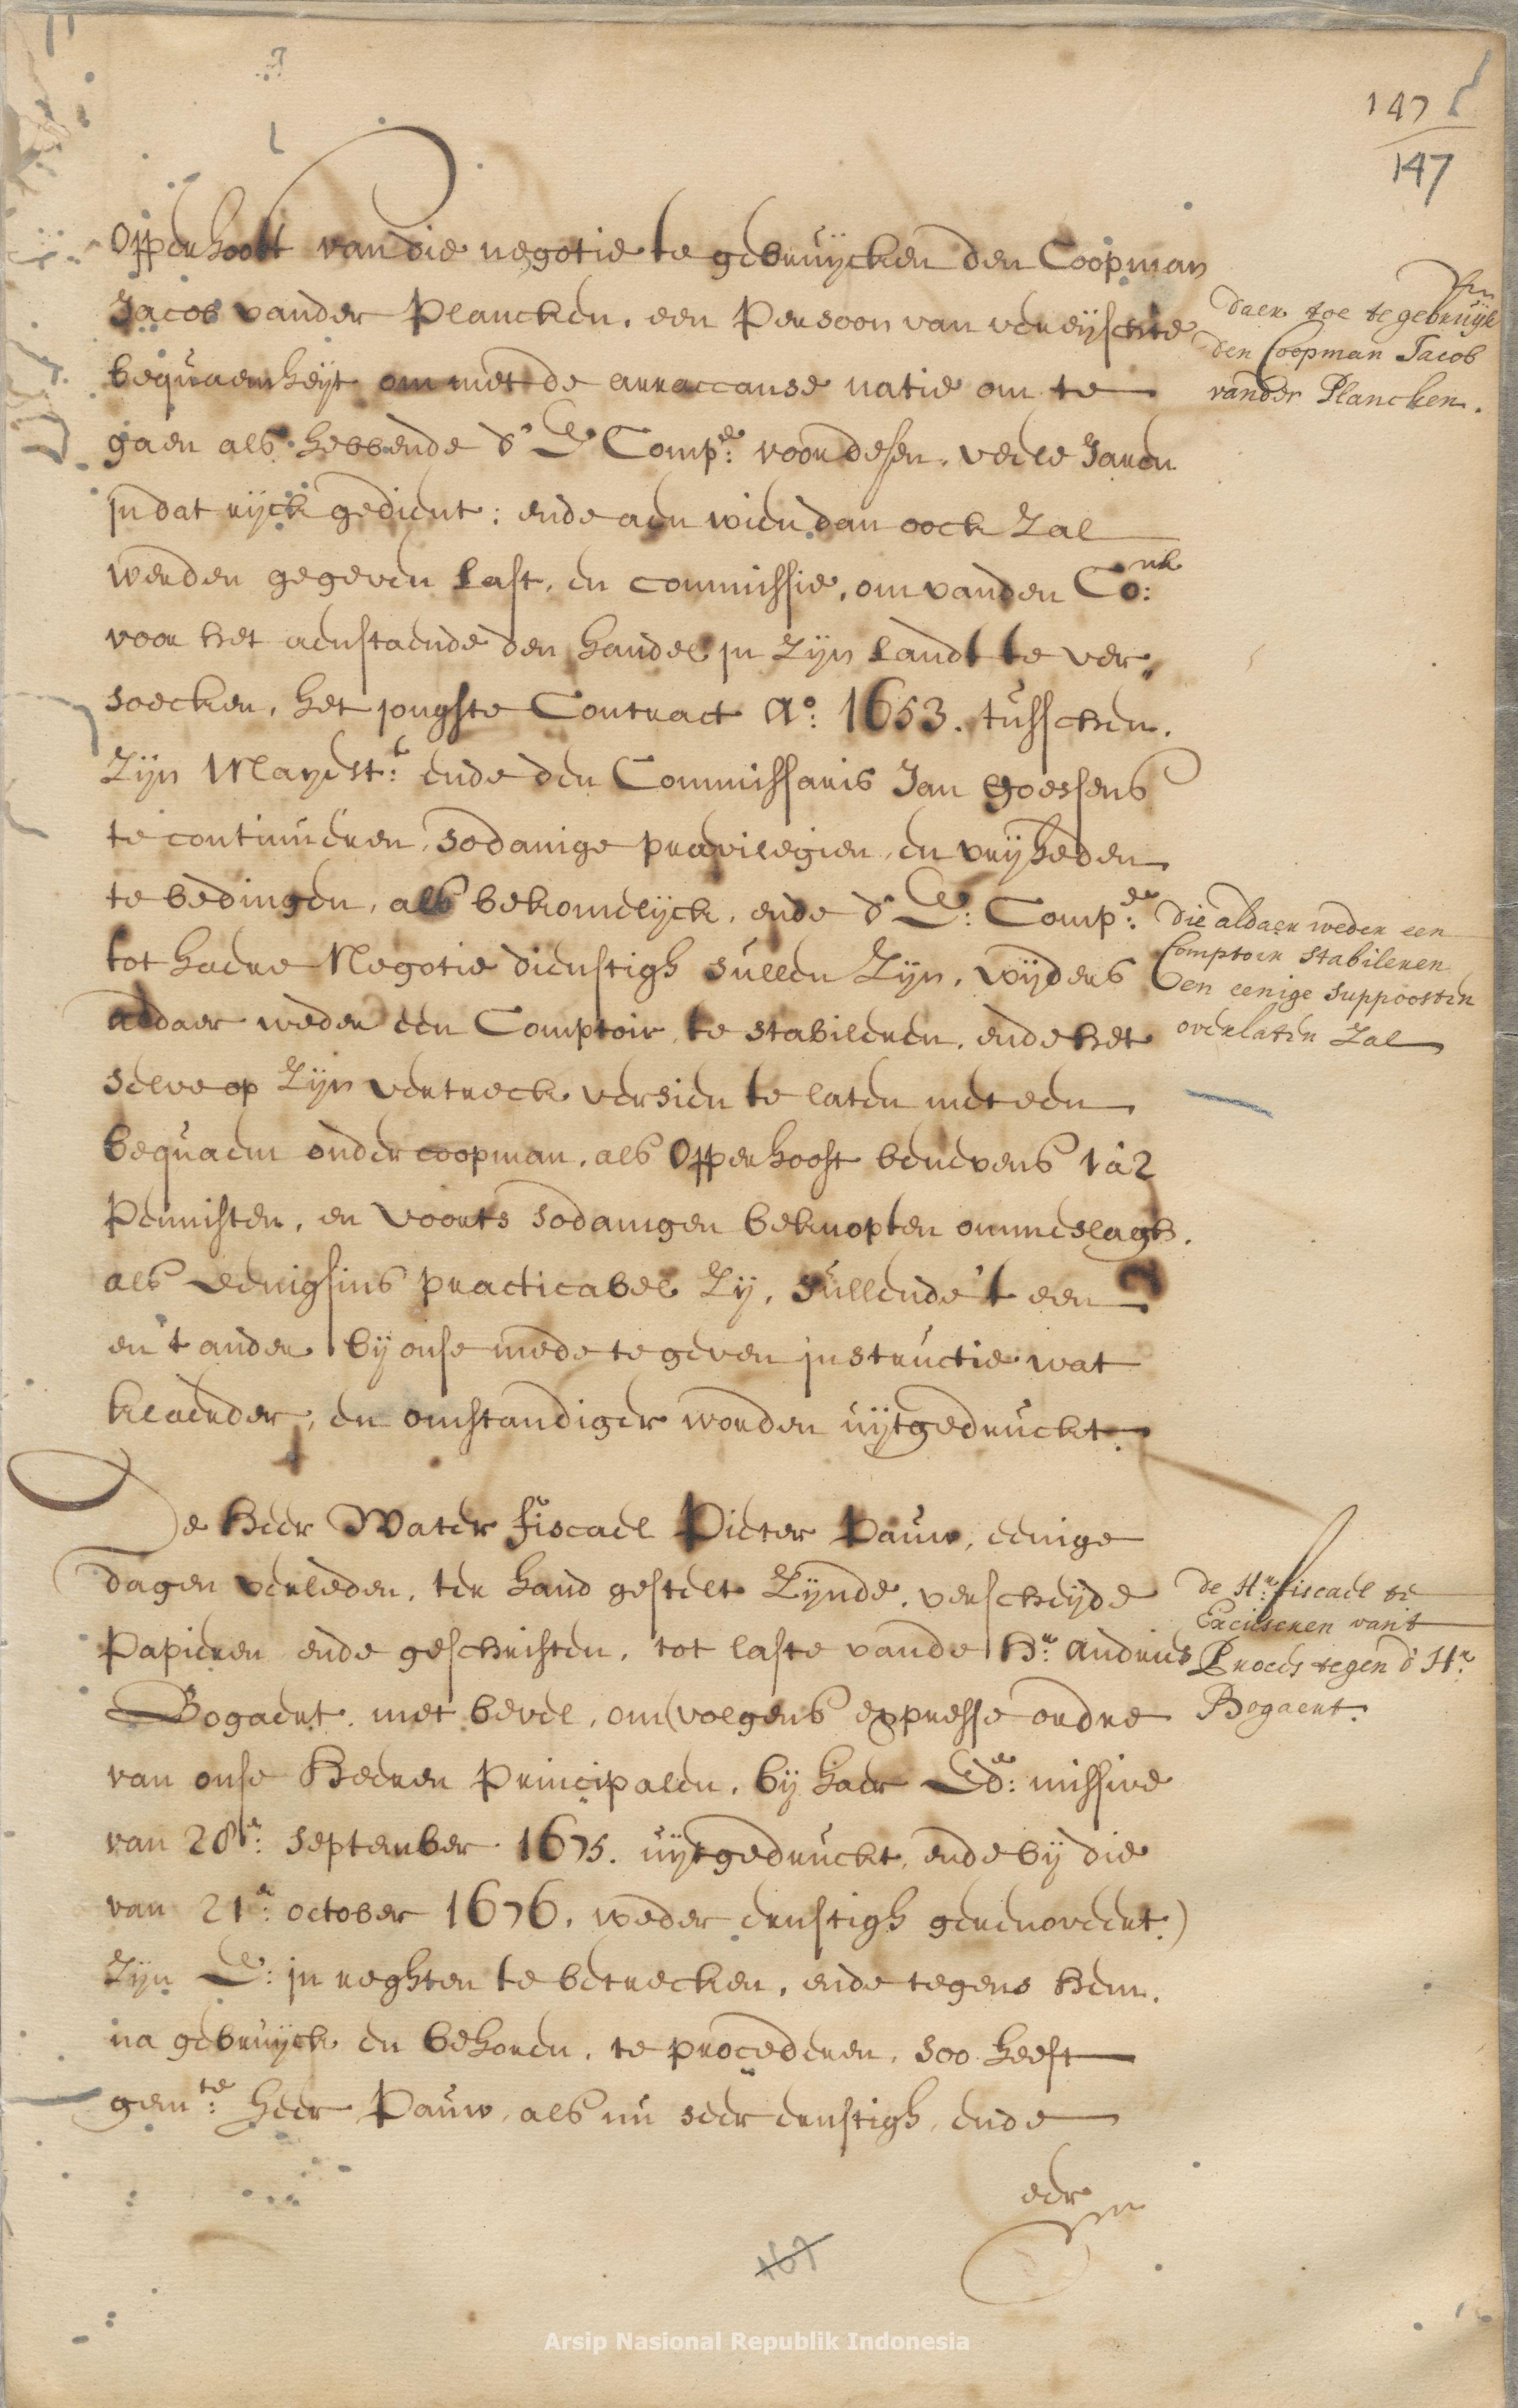 147
147
Opperhooft van die negotie te gebruijcken den Coopman
Jacob vander Plancken, een Persoon van vereijschte
bequaemheijt om met de arraccanse natie om te
gaen als hebbende d' E Comp:e voor desen, veele Jaren
in dat rijck gedient: ende aen wien dan oock Zal
werden gegeven last, en commissie, om vanden Co:nk
voor het aenstaende den handel in Zijn landt te ver„
soecken, het jongste Contract Ao: 1653. tusschen.
Zijn Mayest:t ende den Commissaris Jan Goessens
te continueren, sodanige previlegien, en vrijheden
te bedingen, als bekomelijck, ende d' E: Comp:e
tot haere Negotie dienstigh sullen Zijn, wijders
aldaer weder een Comptoir te stabileren, ende het
selve op Zijn vertreck versien te laten met een
bequaem ondercoopman, als Opperhooft benevens 1 à 2
Pennisten, en voorts sodanigen beknopten ommeslagh.
als eenighsins practicabel Zy, sullende 't een
en 't ander bij onse mede te geven instructie wat
klaerder, en omstandiger worden uijtgedruckt.
daer toe te gebruijken
den Coopman Jacob
vander Plancken.
die aldaer weder een
Comptoir stabileren
en eenige suppoosten
overlaten Zal
De Heer Water fiscael Pieter Pauw, eenige
dagen verleden, ter hand gestelt Zijnde, verscheijde
Papieren ende geschriften, tot laste vande Hr: Andries
Bogaert, met bevel, om (volgens expresse ordre
van onse Heeren Principalen, bij haer Ed:e missive
van 28n: September 1675. uijtgedruckt, ende bij die
van 21n: october 1676. weder ernstigh gerenoveert.)
Zijn E: in reghten te betrecken, ende tegens hem.
na gebruijck en behoren, te procederen, soo heeft
gem:te Heer Pauw, als nu seer ernstigh, ende
de Hr: fiscael te
Excuseren van 't
Proces tegen d' Hr:
Bogaert.
eer
167
Arsip Nasional Republik Indonesia